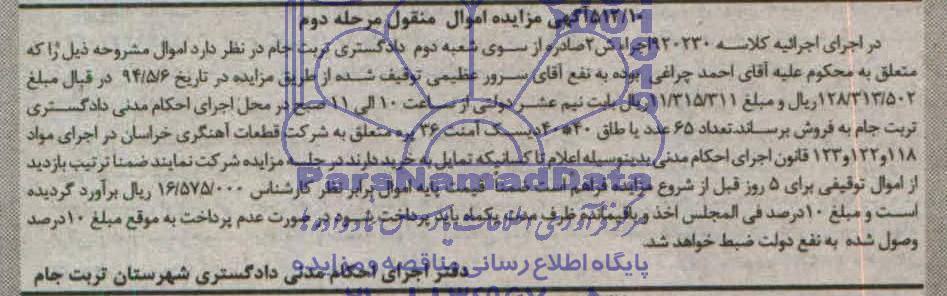 ۵۱۲/۱۰آگهی مزایده اموال منقول مرحله دوم
در اجرای اجرائیه کلاسه ۹۲۰۲۳۰اجراءش۲صادره از سوی شعبه دوم دادگستری تربت جام در نظر دارد اموال مشروحه ذیل را که
متعلق به محکوم علیه آقای احمد چراغی بوده به نفع آقای سرور عظیمی توقیف شده از طریق مزایده در تاریخ ۹۴/۵/۶ در قبال مبلغ
۱۲۸/۳۱۳/۵۰۲ریال و مبلغ ۱۱/۳۱۵/۳۱۱ریال بابت نیم عشر دولتی از ساعت ۱۰ الی ۱۱ صبح در محل اجرای احکام مدنی دادگستری
تربت جام به فروش برساند.تعداد ۶۵ عدد یا طاق ۴۰*۴۰دیسک آمنت ۳۶ پره متعلق به شرکت قطعات آهنگری خراسان در اجرای مواد
۱۱۸و۱۲۲و۱۲۳ قانون اجرای احکام مدنی بدینوسیله اعلام تا کسانیکه تمایل به خرید دارند در جلسه مزایده شرکت نمایند ضمنا ترتیب بازدید
از اموال توقیفی برای ۵ روز قبل از شروع مزایده فراهم است ضمنا قیمت پایه اموال برابر نظر کارشناس ۱۶/۵۷۵/۰۰۰ ریال برآورد گردیده
است و مبلغ ۱۰درصد فی المجلس اخذ و باقیمانده ظرف مدت یکماه باید پرداخت شود در صورت عدم پرداخت به موقع مبلغ ۱۰درصد
وصول شده به نفع دولت ضبط خواهد شد.
دفتر اجرای احکام مدنی دادگستری شهرستان تربت جام
ParaNamadData
پایگاه اطلاع رسانی مناقصه و مزایده